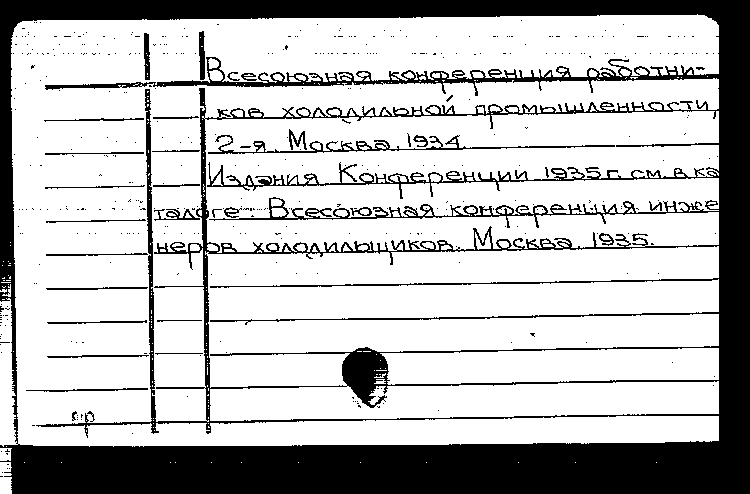 Всесоюзная конференция работни-
ков холодильной промышленности,
2-я. Москва. 1934.
Издания Конференции 1935 г. см. в ка
талоге: Всесоюзная конференция инже
неров холодильщиков. Москва. 1935.